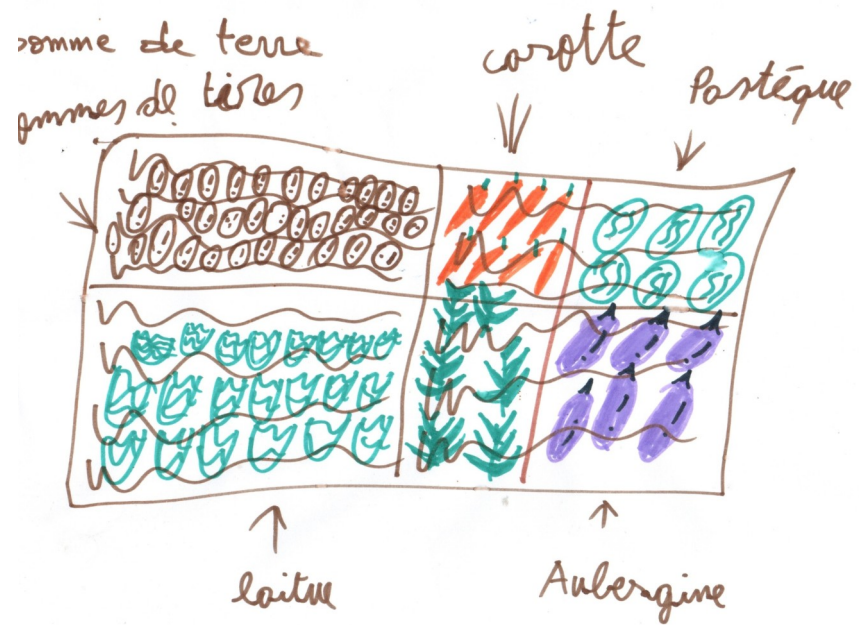 pomme de terre
pommes de terres
carotte
Pastéque
laitue
Aubergine